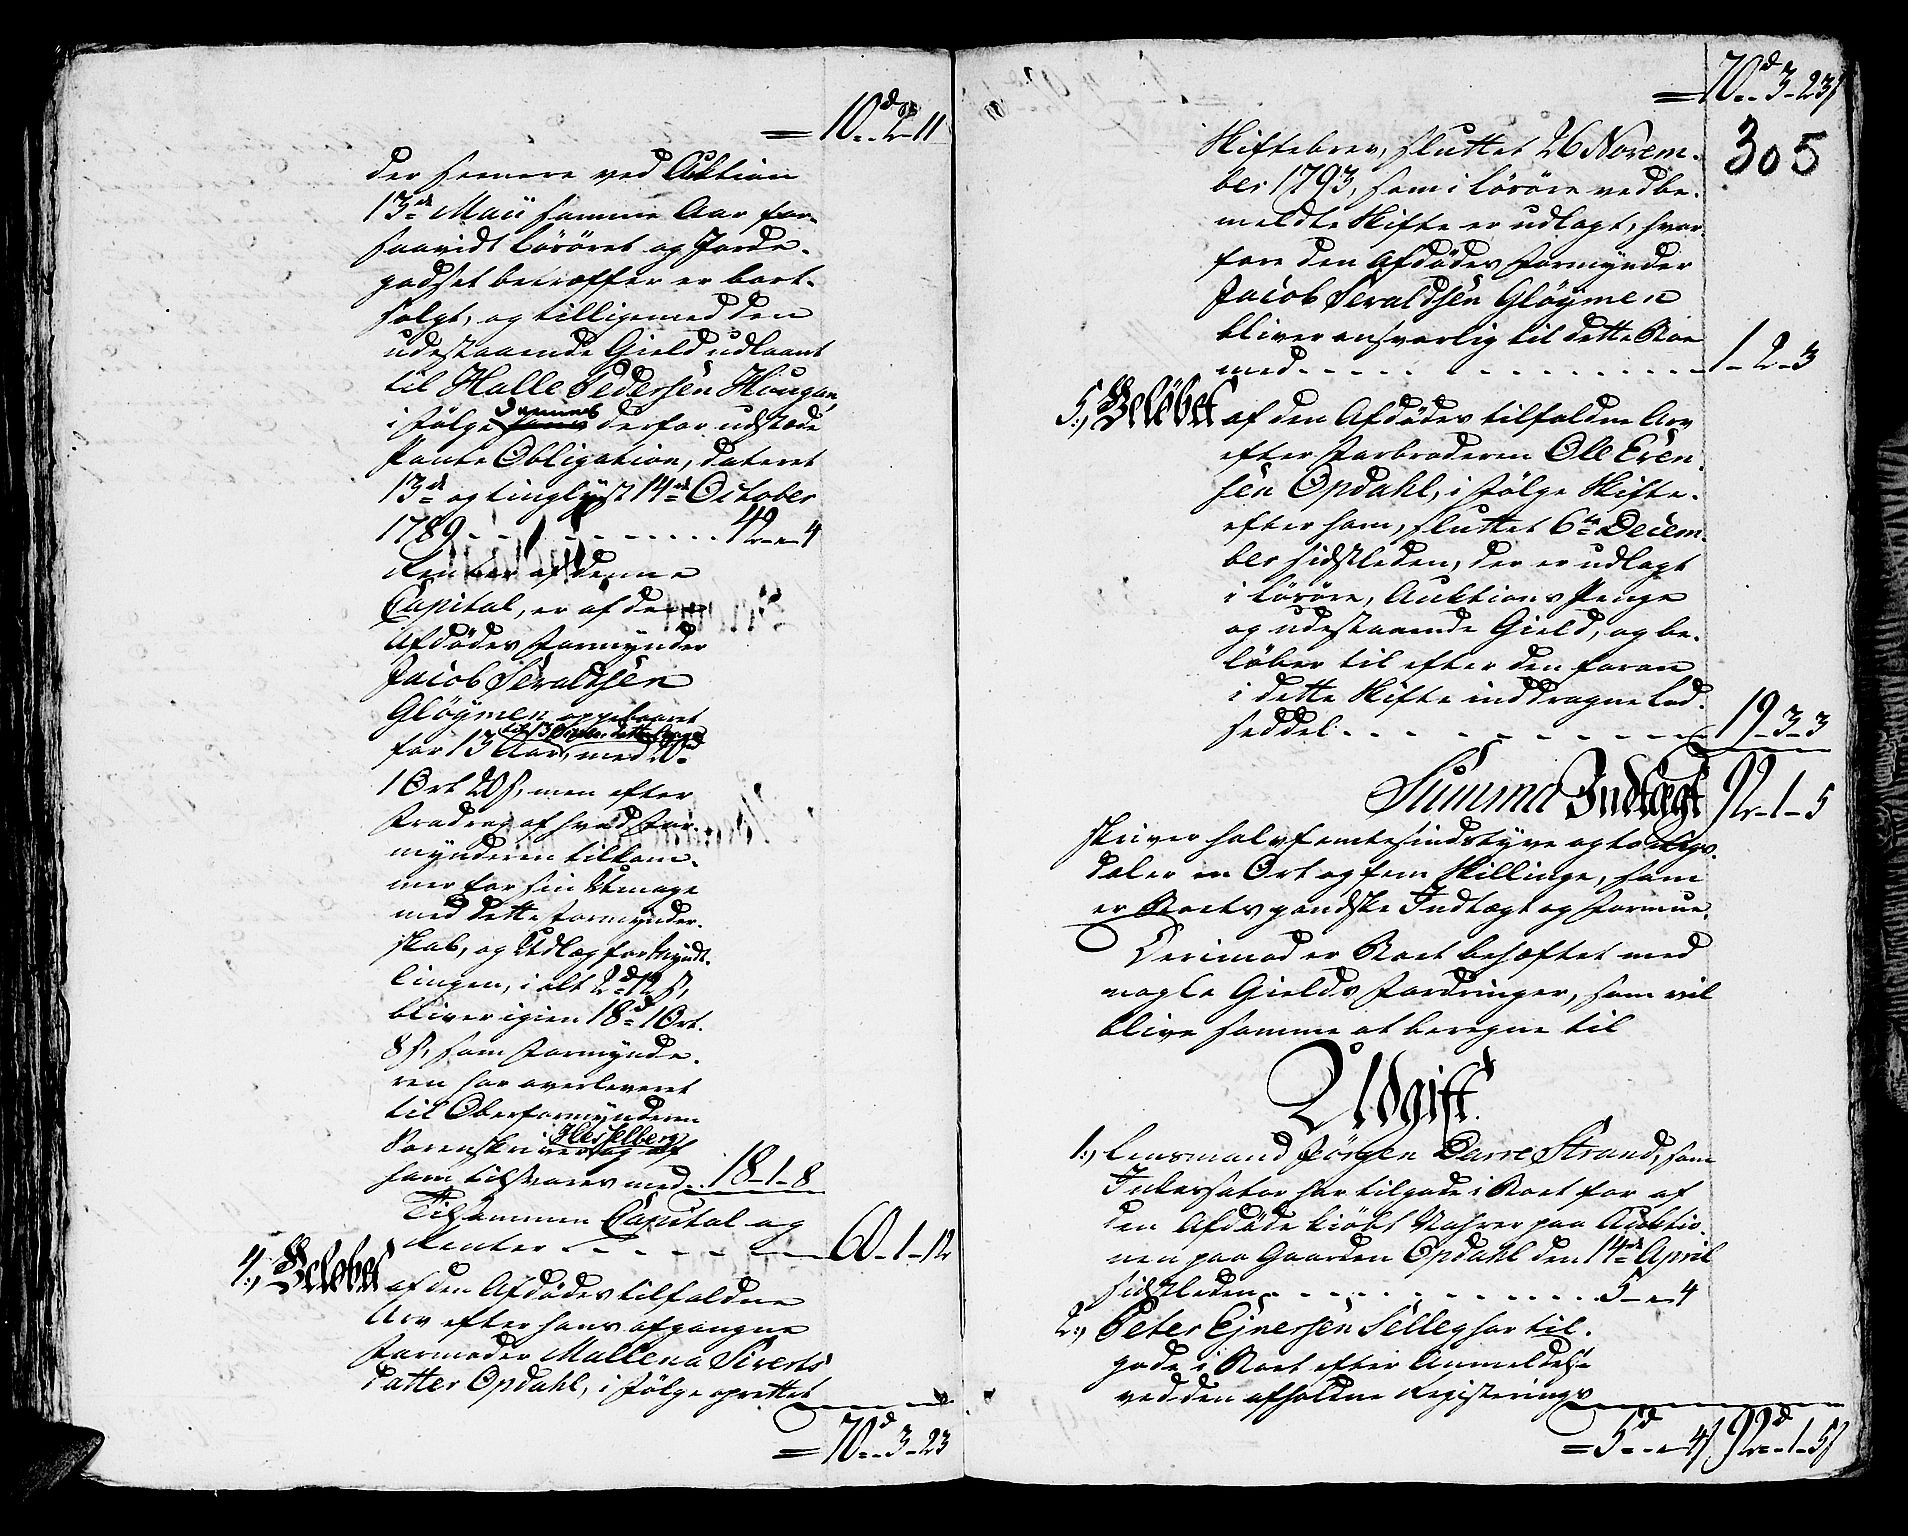 = 10d 2-11
der senere ved Auktion
13de Maii samme Aar for-
saavidt Løsøret og Jorde-
godset betræffer er bort-
solgt, og tilligemed den
udestaaende Gield udlaant
til Halle Pedersen Hougan,
i følge dennes derfor udstæde
Pante Obligation, dateret
13de og tinglyst 14de October
1789 - - - - - - - 42-"-4
Renter af denne
Capital, er af den
Afdødes Formynder
Jacob Seraldsen
Gløymen oppebaaret
for 13 Aar, med 20d
1 Ort 20 s, men efter
Fradrag af hvad For-
mynderen tilkom-
mer for sin Umage
med dette Formynder-
skab, og Udlæg for Myndt-
lingen, i alt 2d 12 s,
bliver igien 18d 1 Ort
8 s, som Formynde-
ren har overleveret
til Oberformynderen
Sorenskriver Hesselberg, og af
ham tilsvares med - 18-1-8
Tilsammen Capital og
Renter - - - - - 60-1-12
4:, Beløbet af den Afdødes tilfaldne
Arv efter hans afgangne
Farmoder Mallena Siverts
datter Opdahl, i følge oprettet
= 70d 3-23
= 70d 3-23 s
305
Skiftebrev, sluttet 26 Novem-
ber 1793, som i Løsøre ved be-
meldte Skifte er udlagt, hvor-
fore den Afdødes Formynder
Jacob Seraldsen Gløymen
bliver ansvarlig til dette Boe
med - - - - - - - 1-2-3
5:, Beløbet af den Afdødes tilfaldne Arv
efter Farbroderen Ole Eren-
sen Opdahl, i følge Skifte-
efter ham, sluttet 6te Decem-
ber sidstleden, der er udlagt
i Løsøre, Auktions Penge
og udestaaende Gield, og be-
løber til efter den foran
i dette Skifte inddragne Lod-
seddel - - - - - - - 19-3-3
Summa Indtægt 92-1-5
skriver halvfemtesindstyve og to Rigs-
daler en Ort og fem Skillinge, som
er Boets gandske Indtægt og Formue.
Derimod er Boet behæftet med
nogle Gields Fordringer, som vil
blive samme at beregne til
Udgift.
1:, Lensmand Jørgen Darre Strand, som
Inkassator har tilgode i Boet for af
den Afdøde kiøbt Vahrer paa Auktio-
nen paa Gaarden Opdahl den 14de April
sidstleden - - - - - - - 5-"-4
2:, Peter Ejnersen Selleg har til-
gode i Boet efter Anmeldelse
ved den afholdne Registerings
= 5d "-4 s 92d-1-5 s